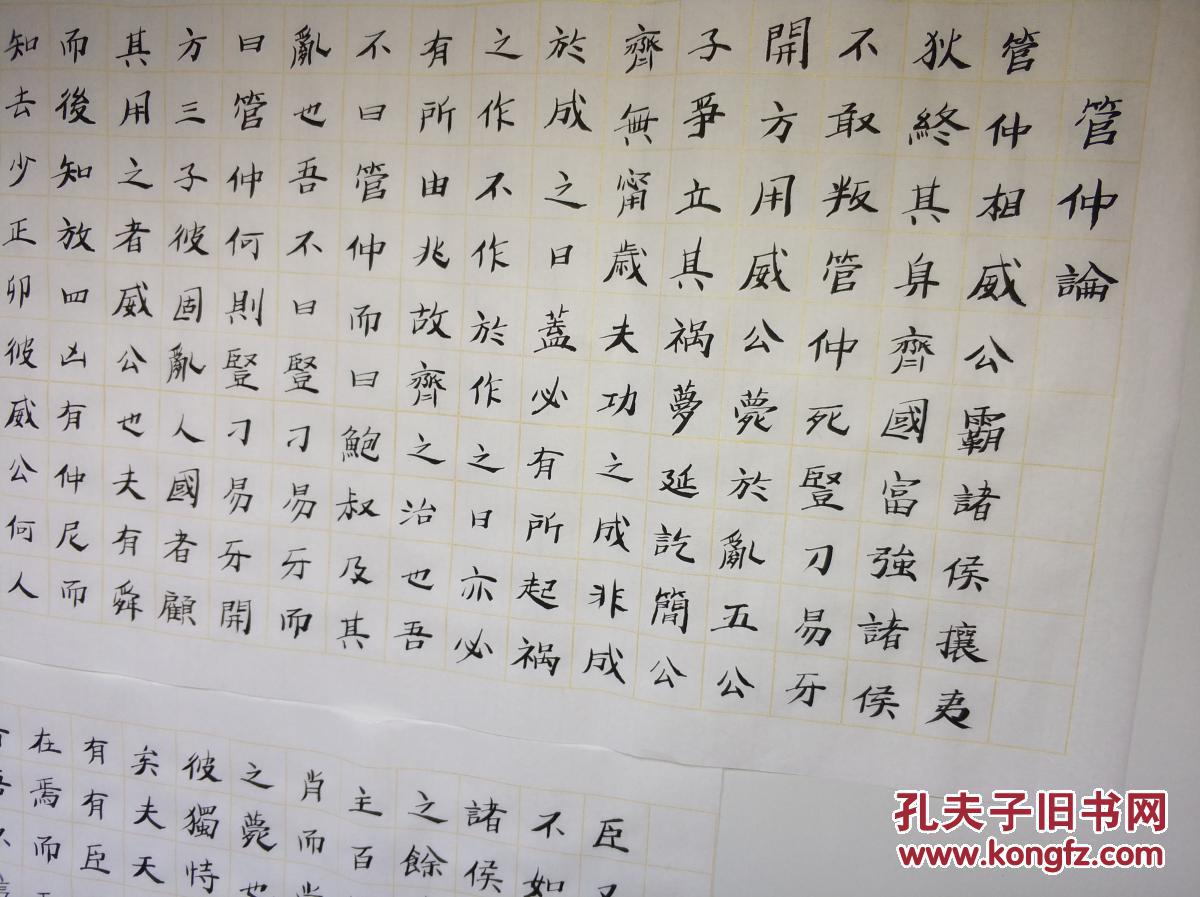 管仲論
管仲相威公霸諸侯攘夷
狄終其身齊國富強諸侯
不敢叛管仲死豎刁易牙
開方用威公薨於亂五公
子爭立其祸夢延訖簡公
齊無甯歲夫功之成非成
於成之日蓋必有所起祸
之作不作於作之日亦必
有所由兆故齊之治也吾
不曰管仲而曰鮑叔及其
亂也吾不曰豎刁易牙而
曰管仲何則豎刁易牙開
方三子彼固亂人國者顧
其用之者威公也夫有舜
而後知放四凶有仲尼而
知去少正卯彼威公何人
臣
不如
諸侯
之餘
主百
肖而
之薨
彼獨恃
矣夫天
有有臣
在焉而
孔夫子旧书网
www.kongfz.com